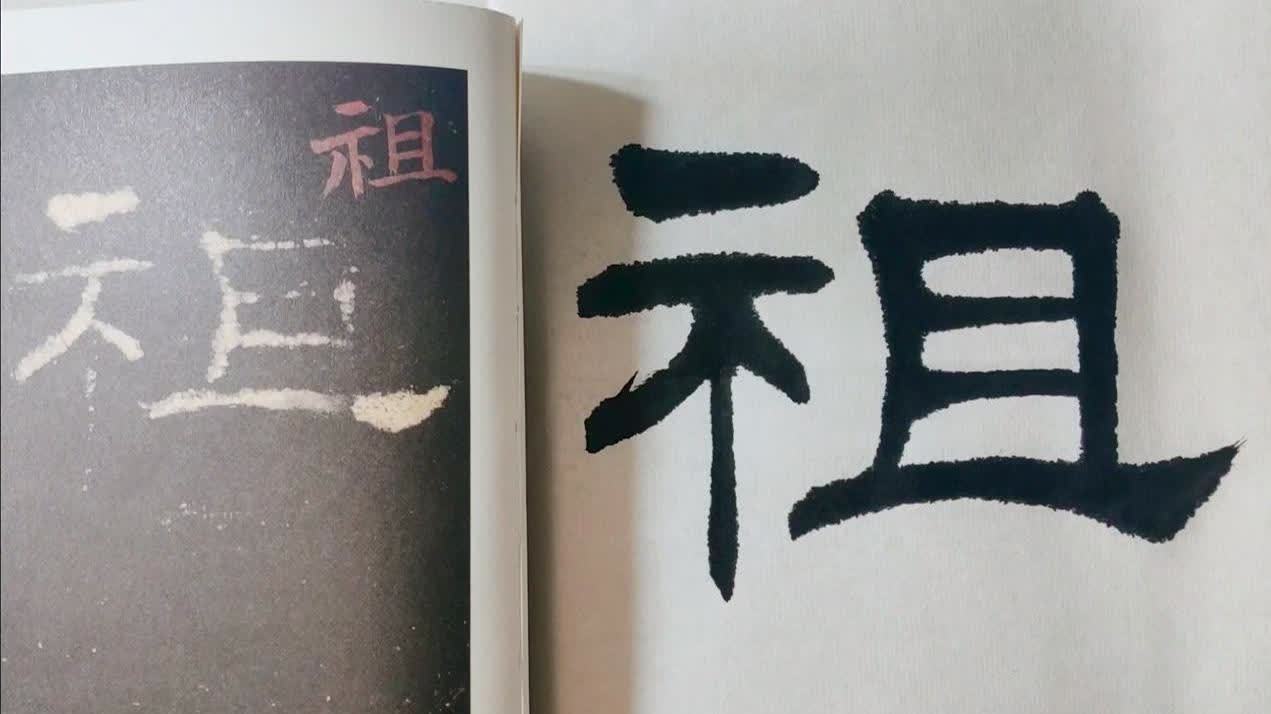 祖
祖
祖